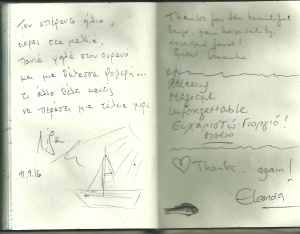 Του απέραντο ήλιο,
αέρας στα μαλλιά,
Πανιά ψηλά στον ουρανό
και μια θάλασσα
τι άλλο θέλει κανείς
να περάσει μια τέλεια μέρα
Λίζα
11.9.16
Thanks for the beautiful
trip, your hospitality,
food!
Relaxing
Magical
Unforgettable
Ευχαριστώ Γιωργιό!
Thanks... again!
Eleonora